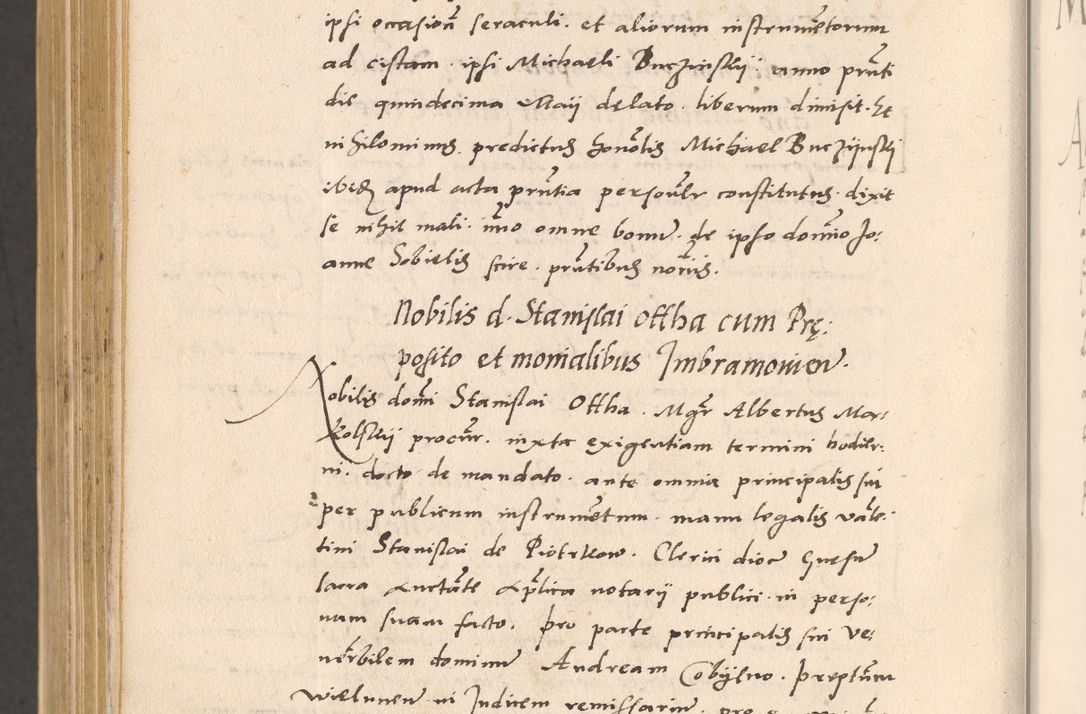 ipsi occasion̄ seraculi. et aliorum instrumētorum
ad cistam. ipsi Michaeli Buczinskij anno prn̄ti
die quindecima Maij delato. liberum dimisit. Et
nihilominus predictus honōlis Michael Buczijnskj
ibidē apud acta prn̄tia personlr̄ constitutus. dixit
se nihil mali. im̄o omne bonū. de ipso domīo Jo:
anne Sobielis scire. prn̄tibus
Nobilis d. Stanislai Offha cum Prę:
posito et monialibus Jmbramowien̄.
Nobilis domī Stanislai Offha. Mgr̄ Albertus Mar:
kolskij procūr. iuxta exigentiam termini hodier:
ni. docto de mandato. ante omnia principalis sui
per publicum instrumētum. manu legalis vāle:
tini Stanislai de Piotrkow. Clerici dioc̄ Gnesn̄
sacra auctāte aplīca notarij publici in perso:
nam suam facto. Pro parte principalis sui Ve:
nērbilem dominū Andream Cobijlno. Preptūm
Wielunen̄ in Judicem remissariū.